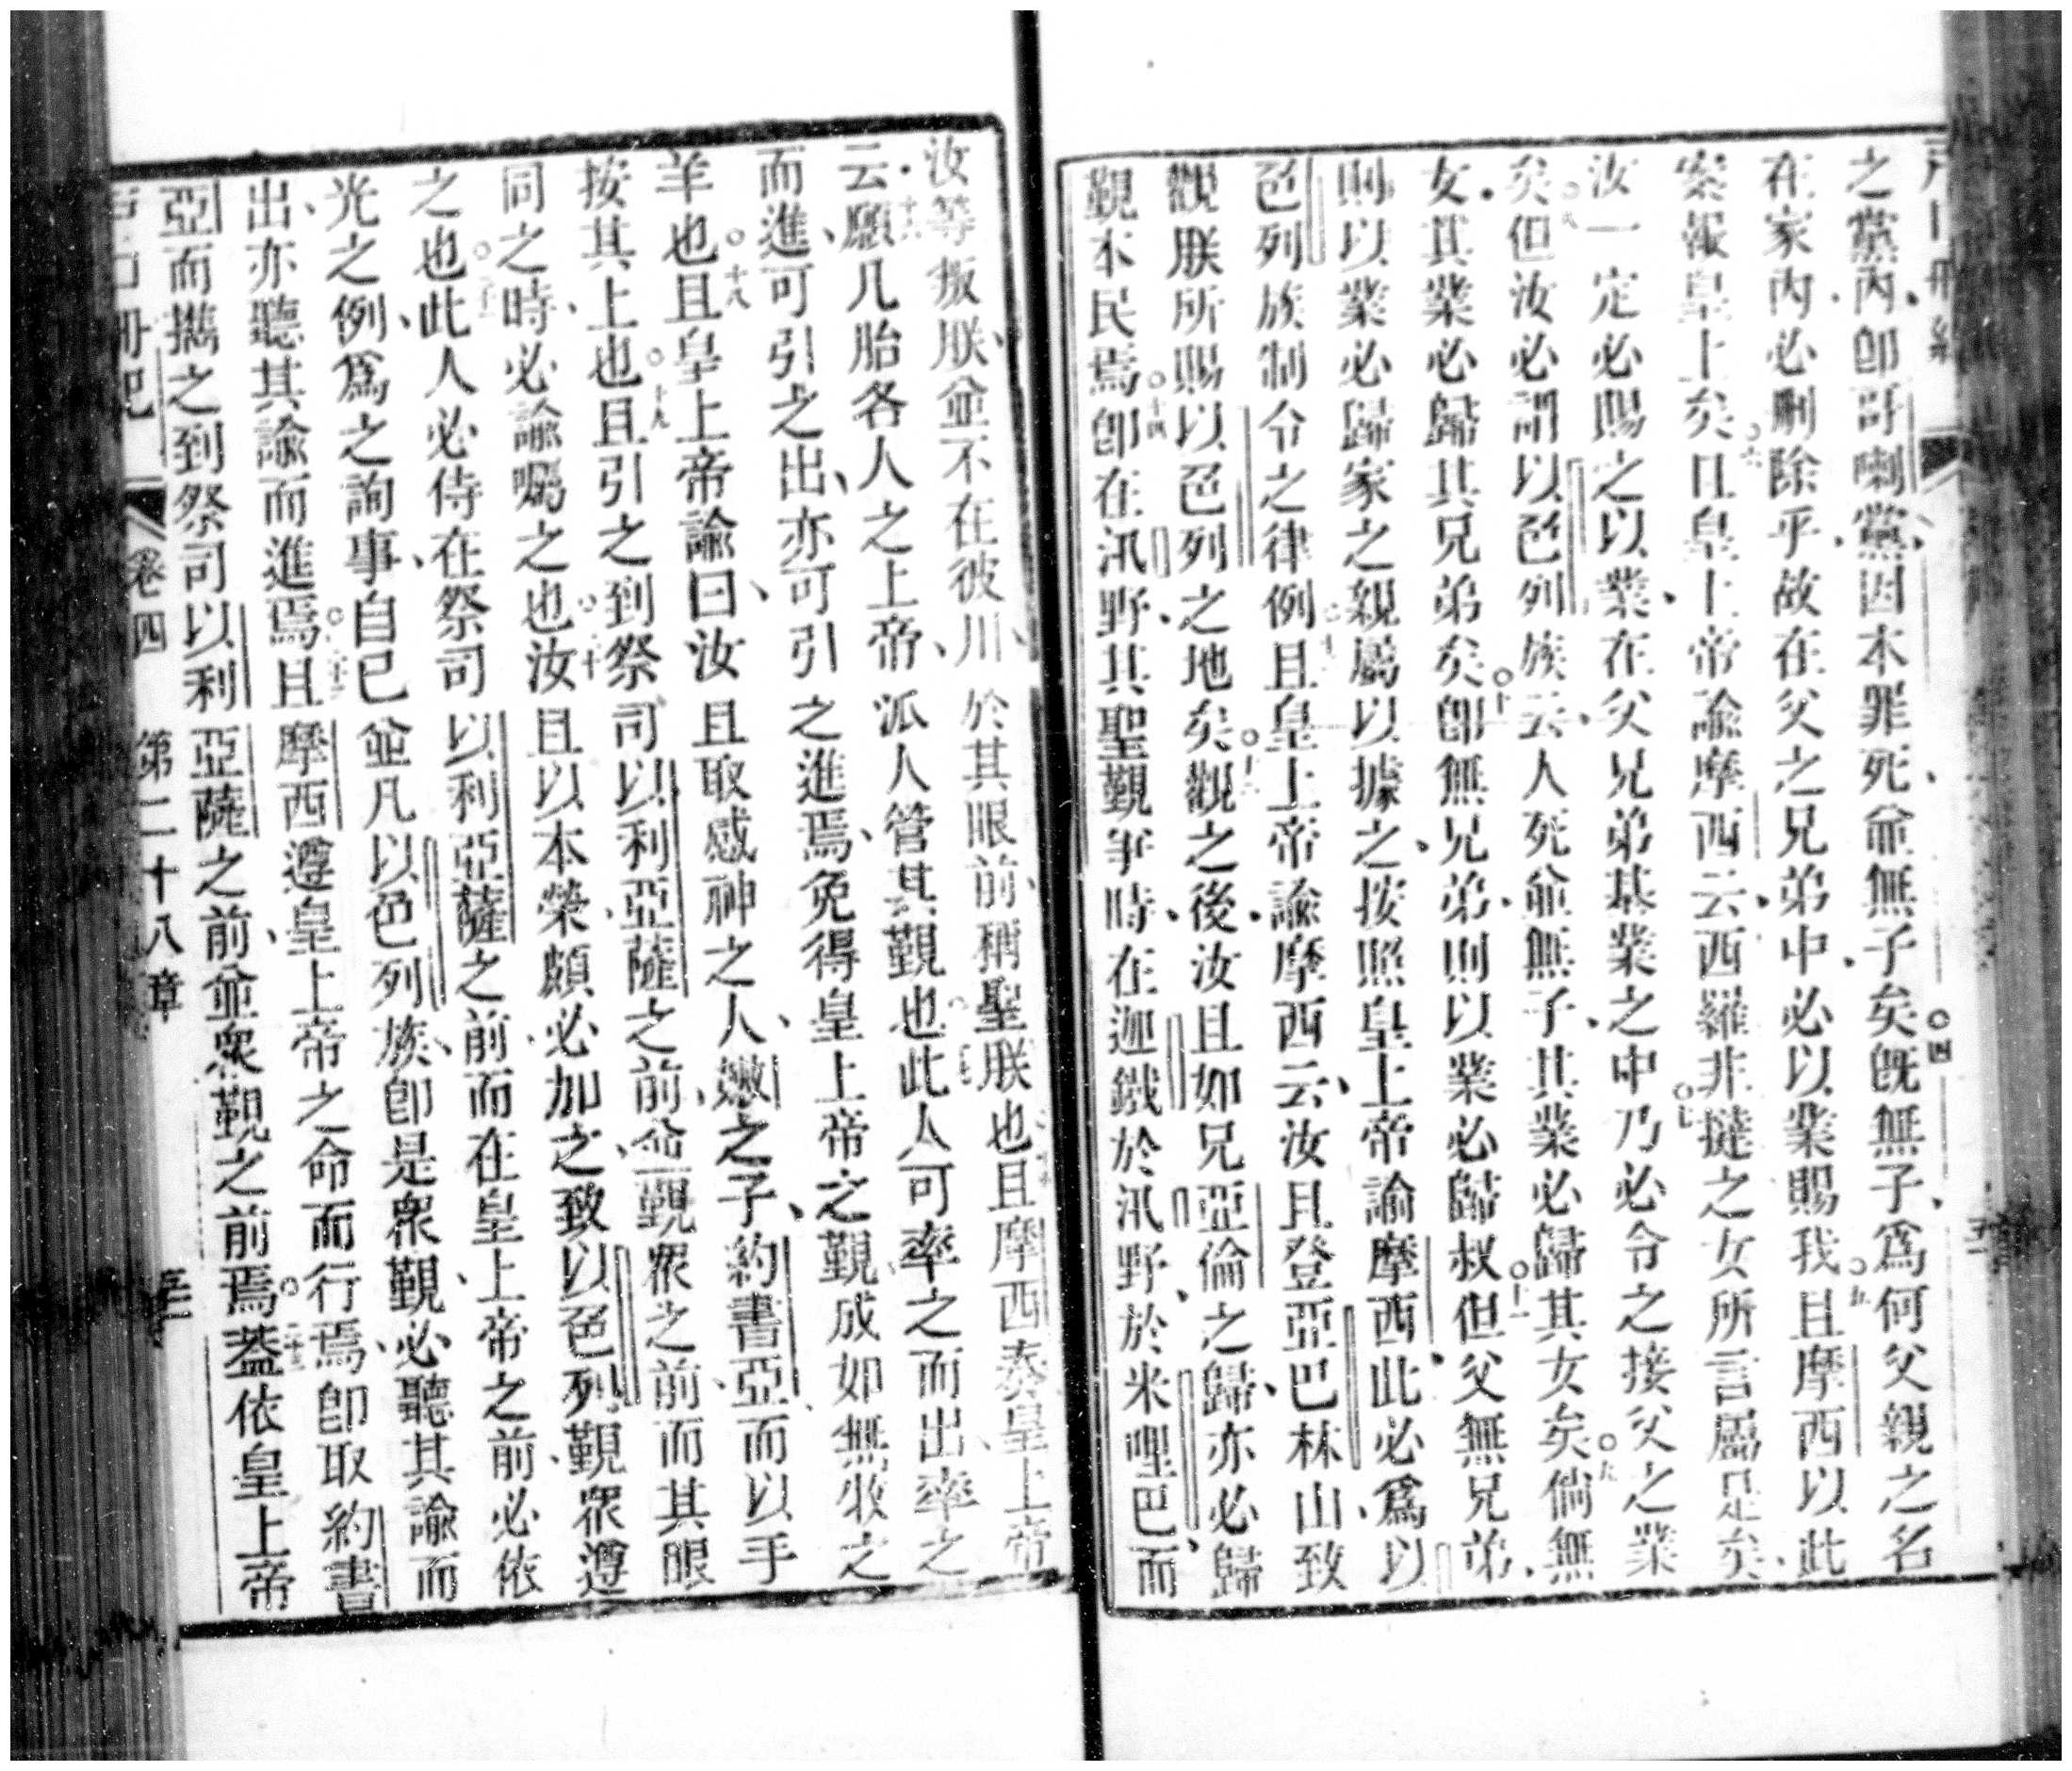 之黨內、卽哥喇黨、因本罪死、並無子矣○四旣無子、爲何父親之名
在家內、必刪除乎、故在父之兄弟中、必以業賜我○五且摩西以此
案報皇上矣○六且皇上帝諭摩西云、西羅非撻之女所言屬是矣、
汝一定必賜之以業、在父兄弟基業之中○七乃必令之接父之業
矣○八但汝必謂以色列族云、人死並無子、其業必歸其女矣○九倘無
女、其業必歸其兄弟矣○十卽無兄弟、則以業必歸叔○十一但父無兄弟、
則以業必歸家之親屬以據之、按照皇上帝諭摩西、此必爲以
色列族制令之律例○十二且皇上帝諭摩西云、汝且登亞巴林山、致
觀朕所賜以色列之地矣○十三觀之後、汝且如兄亞倫之歸、亦必歸
覲本民焉○十四卽在汛野、其聖覲爭時、在迦鐵於汛野、於米哩巴而
汝等叛朕、並不在彼川、於其眼前、稱聖朕也○十五且摩西奏皇上帝
云、○十六願凡胎各人之上帝、派人管其覲也○十七此人可率之而出、率之
而進、可引之出、亦可引之進焉、免得皇上帝之覲成如無牧之
羊也○十八且皇上帝諭曰、汝且取感神之人、嫩之子、約書亞而以手
按其上也○十九且引之到祭司以利亞薩之前、並覲眾之前、而其眼
同之時、必諭囑之也○二十汝且以本榮、頗必加之、致以色列覲眾遵
之也○二十一此人必侍在祭司以利亞薩之前、而在皇上帝之前、必依
光之例、爲之詢事、自已並凡以色列族、卽是眾覲、必聽其諭而
出、亦聽其諭而進焉○二十二且摩西遵皇上帝之命而行焉、卽取約書
亞而攜之到祭司以利亞薩之前、並眾覲之前焉○二十三蓋依皇上帝
戶口冊紀 卷四 第二十八章